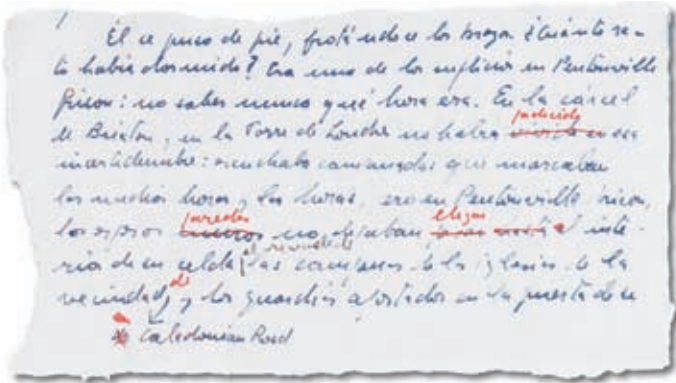 Él se puso de pie, frotándose los brazos. ¿Cuánto ra-
to había dormido? Era uno de los suplicios en Pentonville
Prison: no saber nunca qué hora era. En la cárcel
padecido
de Brixton, en la Torre de Londres no había esa
incertidumbre: escuchaba campanadas que marcaban
las medias horas, las horas, en Pentonville Prison,
paredes
los muros no dejaban al inte-
rior de su celda el revuelo de las campanas de las iglesias de la
de
vecindad, y los guardias apostados en la puerta de
Caledonian Road